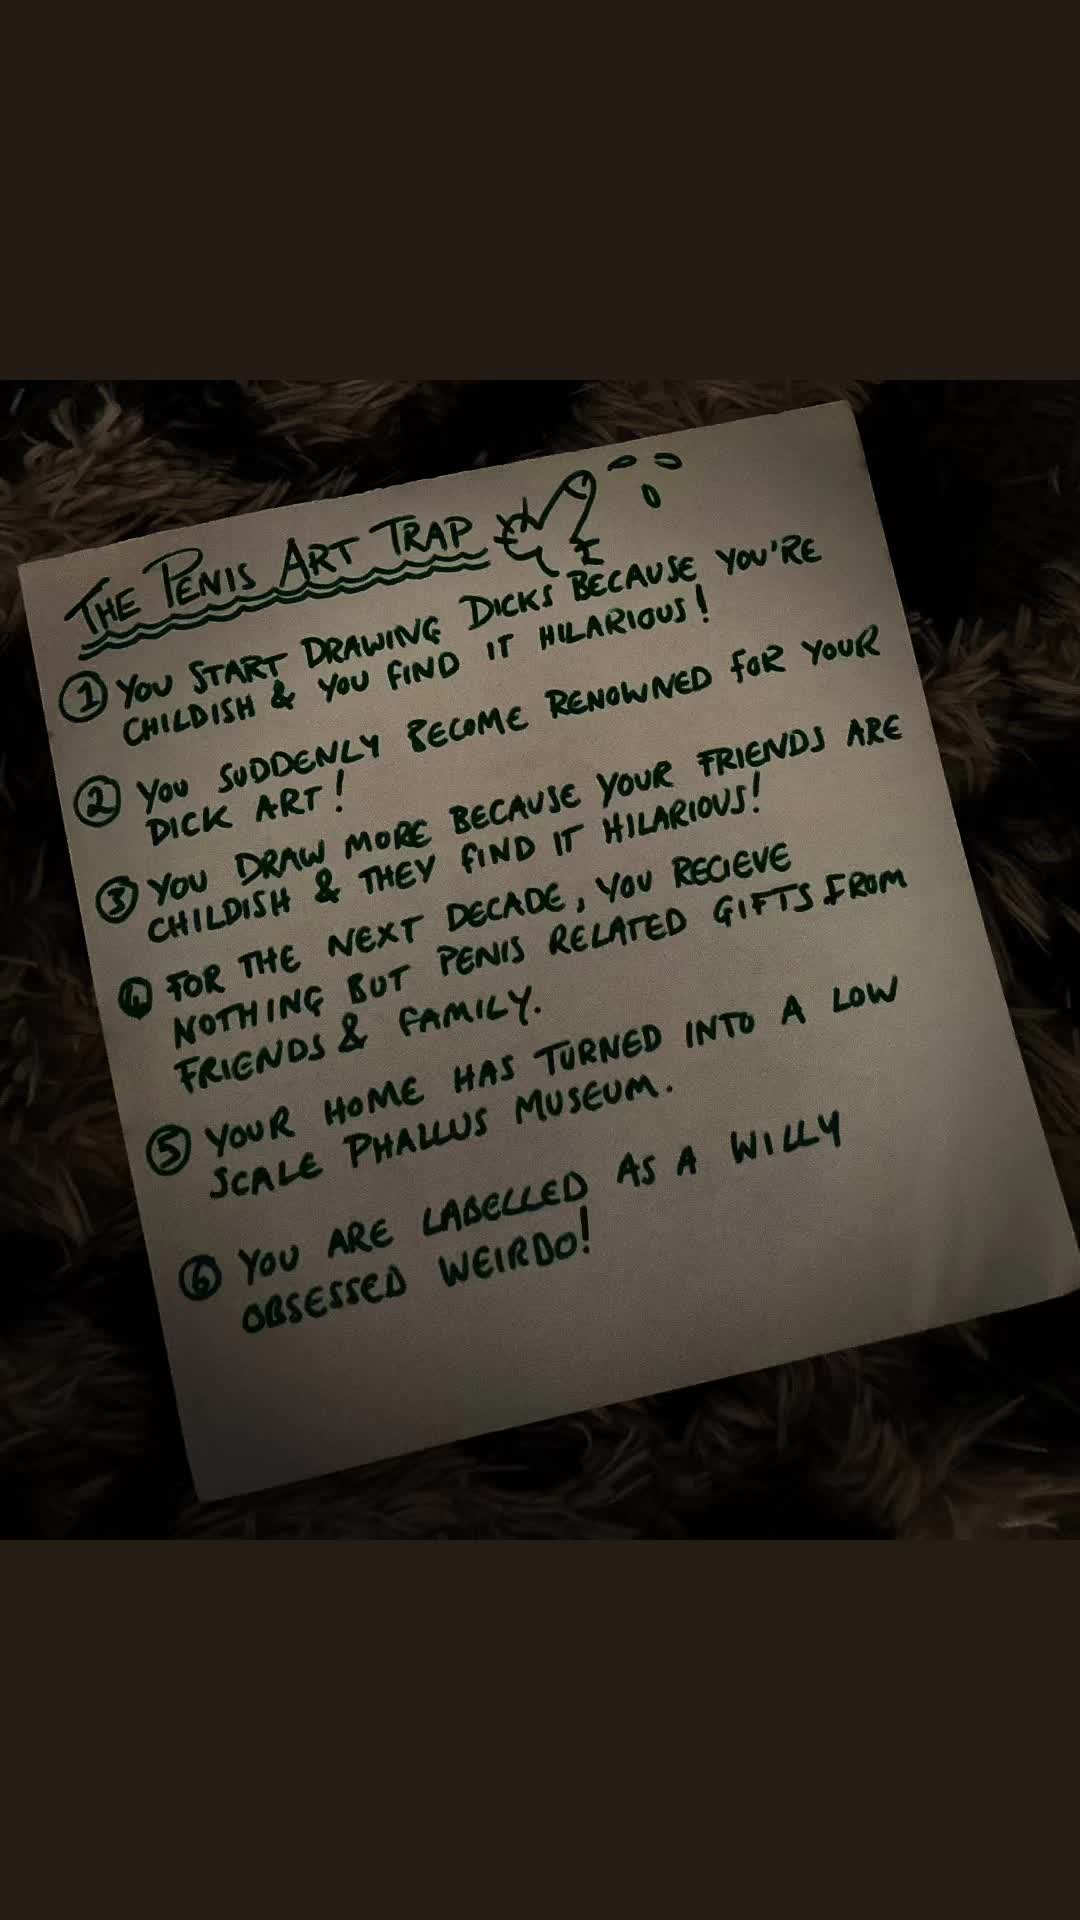 THE PENIS ART TRAP
① YOU START DRAWING DICKS BECAUSE YOU'RE
CHILDISH & YOU FIND IT HILARIOUS!
② YOU SUDDENLY BECOME RENOWNED FOR YOUR
DICK ART!
③ YOU DRAW MORE BECAUSE YOUR FRIENDS ARE
CHILDISH & THEY FIND IT HILARIOUS!
④ FOR THE NEXT DECADE, YOU RECIEVE
NOTHING BUT PENIS RELATED GIFTS FROM
FRIENDS & FAMILY.
⑤ YOUR HOME HAS TURNED INTO A LOW
SCALE PHALLUS MUSEUM.
⑥ YOU ARE LABELLED AS A WILLY
OBSESSED WEIRDO!